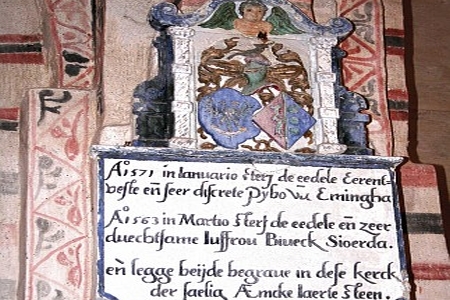 A° 1571 in Ianuario sterf de eedele Eerent-
veste en̄ seer discrete Pÿbo Van Emingha
A° 1563 in Martio sterf de eedele en̄ zeer
duechtsame Iuffrou Biueck Sioerda.
en̄ legge beÿde begraue in dese kerck
der saelig Æmcke laerte steen.